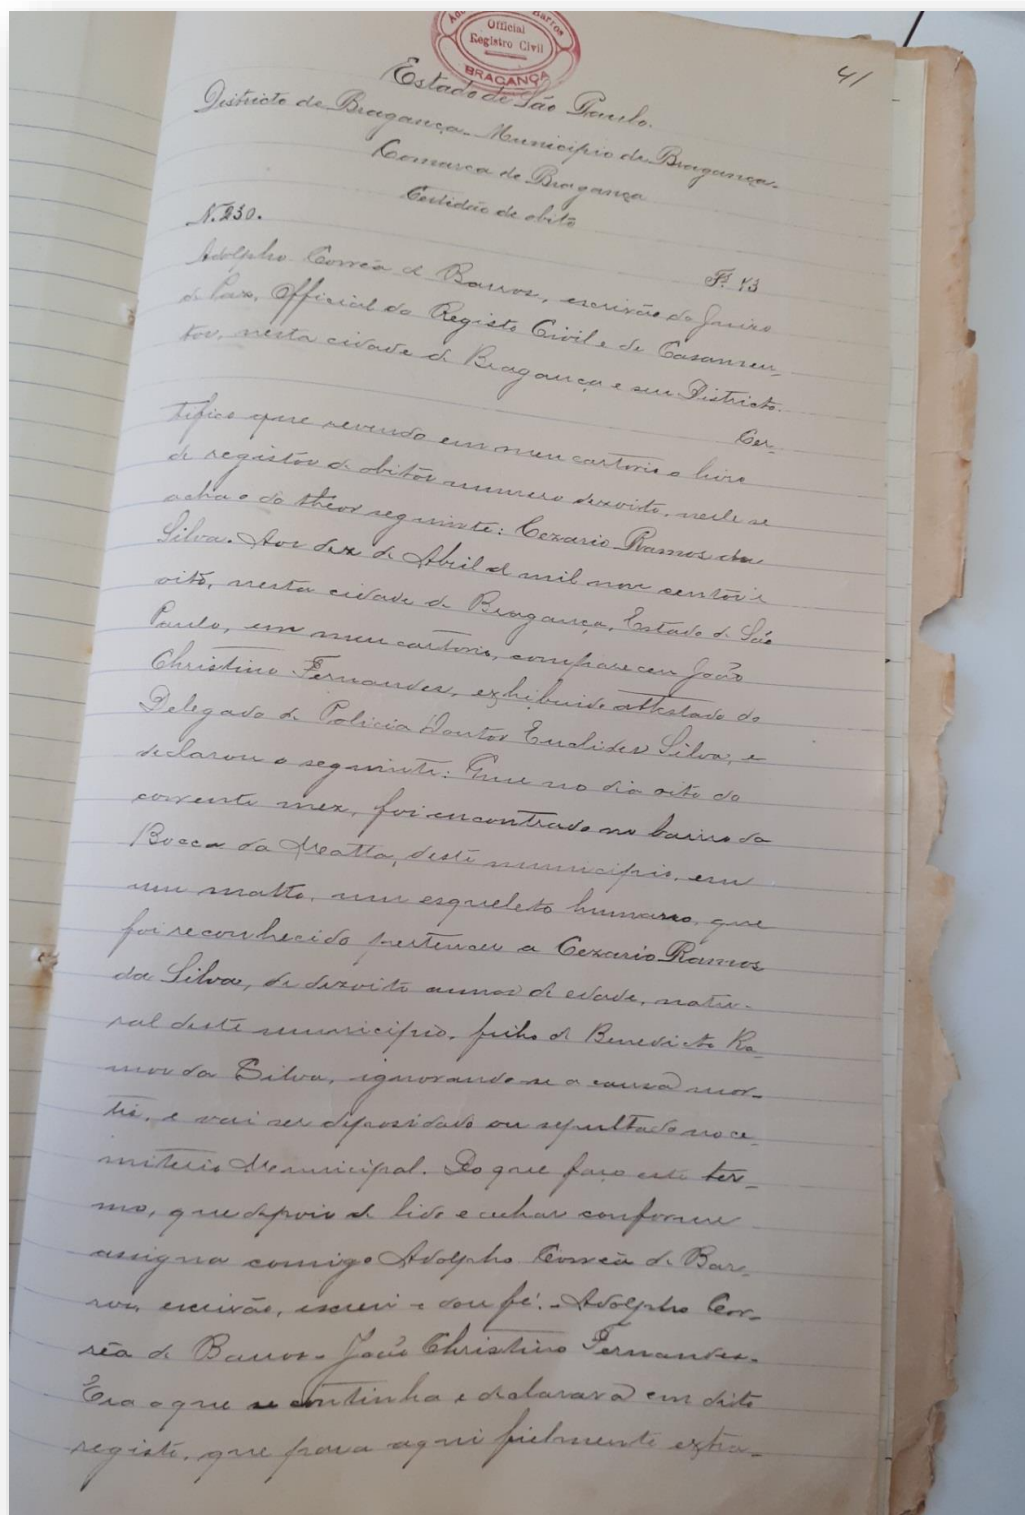 Official
Registro Civil
BRAGANÇA
41
Estado de São Paulo.
Districto de Bragança - Municipio de Bragança -
Comarca de Bragança
Certidão de obito
N. 230.
Fs. 43
Adolpho Corrêa de Barros, escrivão do Juizo
de Paz, Official do Registo Civil e de Casamen-
tos, nesta cidade de Bragança e seu Districto.
Cer-
tifico que revendo em meu cartorio o livro
de registos de obitos numero dezoito, nelle se
acha o do theor seguinte: Cezario Ramos da
Silva. Aos dez de Abril de mil nove centos e
oito, nesta cidade de Bragança, Estado de São
Paulo, em meu cartorio, compareceu João
Christino Fernandes, exhibindo attestado do
Delegado de Policia Doutor Euclides Silva, e
declarou o seguinte: Que no dia oito do
corrente mez, foi encontrado no bairro da
Bocca da Matta, deste municipio, em
um matto, um esqueleto humano, que
foi reconhecido pertencer a Cezario Ramos
da Silva, de dezoito annos de edade, natu-
ral deste municipio, filho de Benedicto Ra-
mos da Silva, ignorando-se a causa mor-
tis, e vai ser depositado ou sepultado no ce-
miterio Municipal. Do que faço este ter-
mo, que depois de lido e achar conforme
assigna comigo Adolpho Corrêa de Bar-
ros, escrivão, escrevi e dou fé. - Adolpho Cor-
rêa de Barros - João Christino Fernandes -
Era o que se continha e declarava em dito
registo, que para aqui fielmente extra-